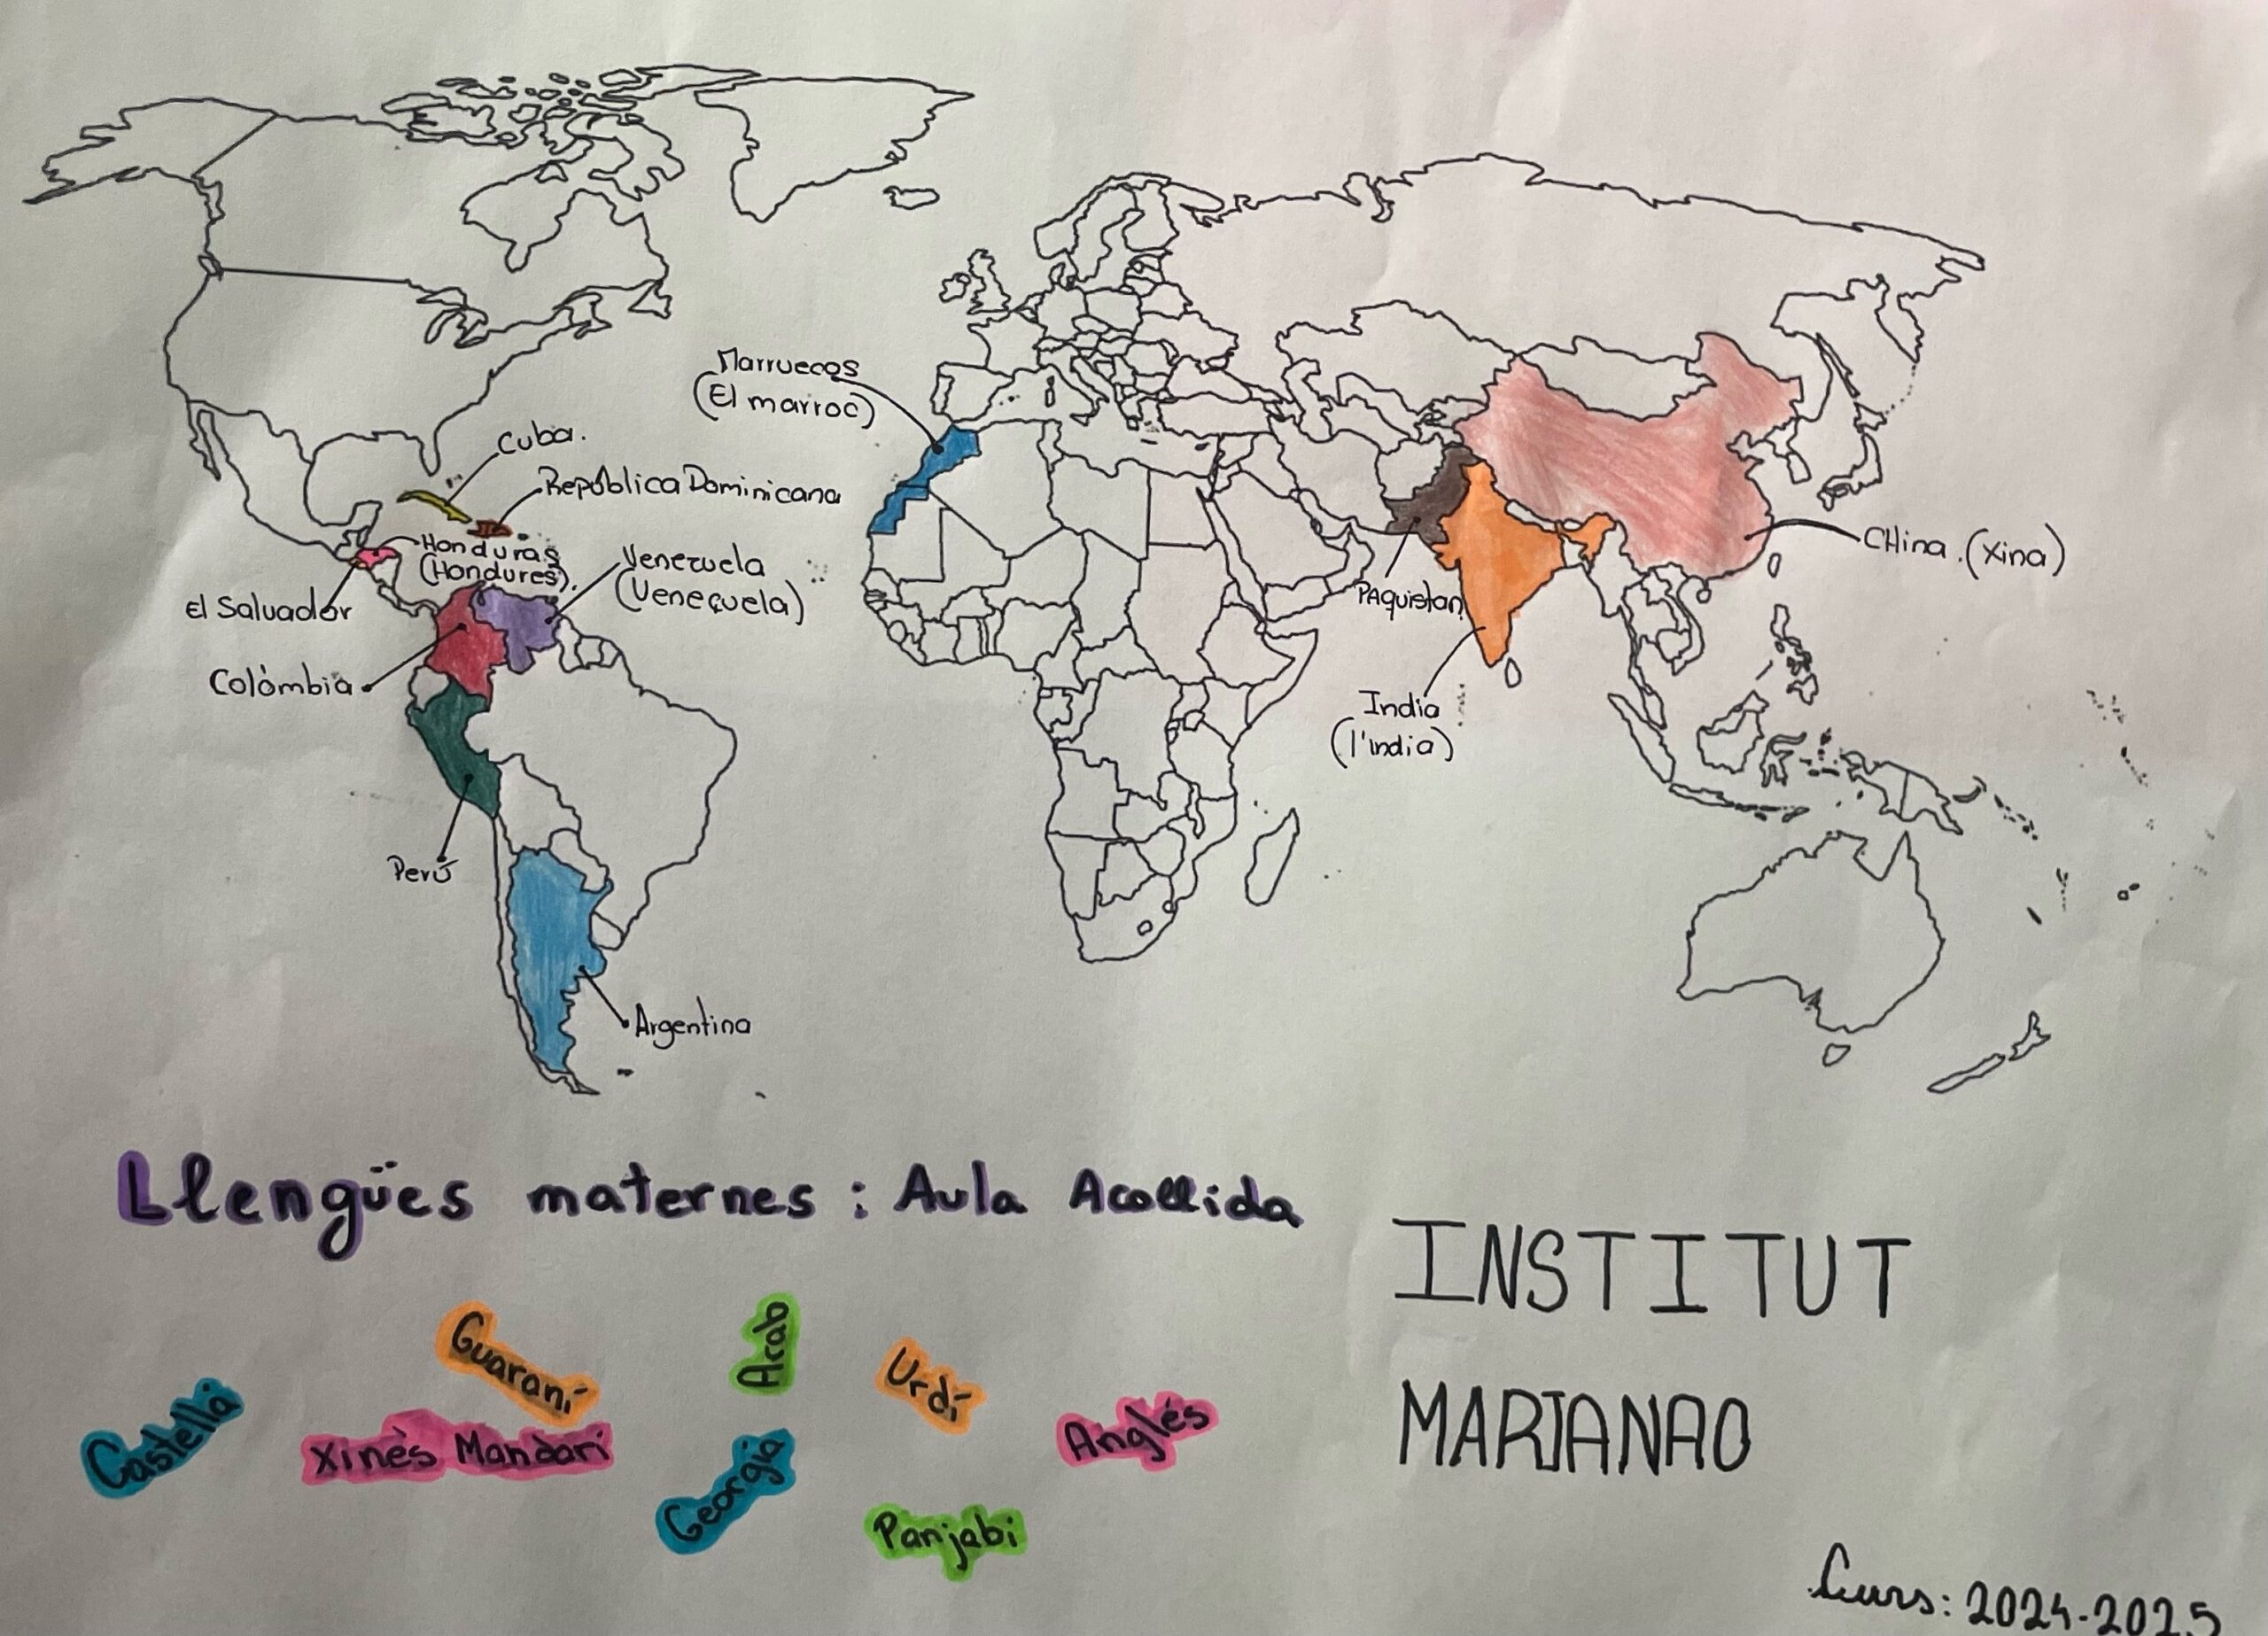 Marruecos
(El marroc)
Cuba.
República Dominicana
Honduras
(Hondures).
Venezuela
(Veneçuela)
El Salvador
Colòmbia
Perú
Argentina
PAquistan
India
(l'índia)
CHina. (Xina)
Llengües maternes: Aula Acollida
Castellà
Guaraní
Xinès Mandarí
Arab
Georgià
Urdí
Panjabi
Anglés
INSTITUT
MARIANAO
Curs: 2024-2025